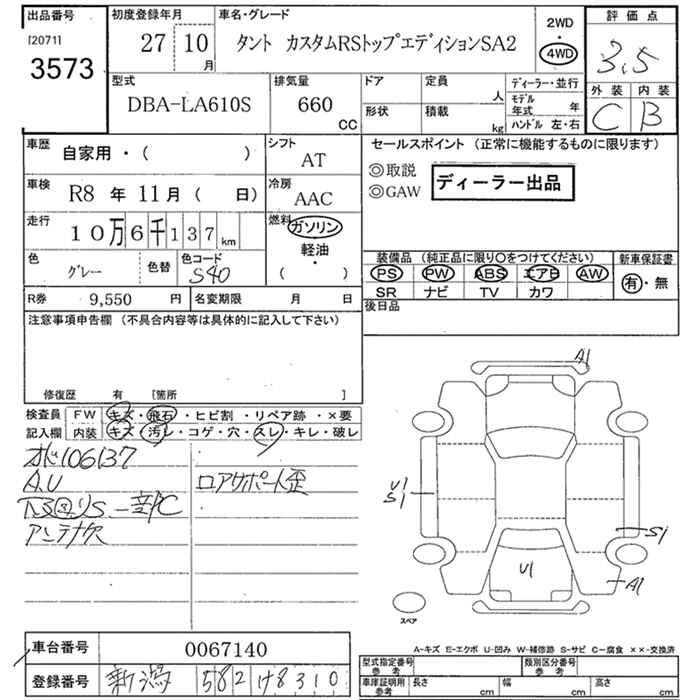 出品番号 初度登録年月 車名・グレード
[2071]
3573
27 10 月
タント カスタムRSトップエディションSA2
2WD
・
4WD
評価点
3.5
外装 内装
C B
型式 排気量 ドア 定員 人 ディーラー・並行
DBA-LA610S 660 CC
モデル年式 年
形状 積載 kg ハンドル 左・右
車歴 自家用・( )
シフト AT
車検 R8 年 11 月 ( 日)
冷房 AAC
走行 10万6千137 km
燃料 ガソリン・軽油・( )
色 グレー 色替 色コード S40
R券 9,550 円 名変期限 月 日
セールスポイント (正常に機能するものに限ります)
◎取説
◎GAW
ディーラー出品
装備品 (純正品に限り〇をつけてください)
PS PW ABS エアB AW
SR ナビ TV カワ
新車保証書
有・無
後日品
注意事項申告欄 (不具合内容等は具体的に記入して下さい)
修復歴 有 [箇所 ]
検査員 FW キズ・飛石・ヒビ割・リペア跡・×要
記入欄 内装 キズ・汚レ・コゲ・穴・スレ・キレ・破レ
106137
A,U
ロアサポート歪
S 一部C
アンテナ欠
A1
U1
S1
S1
U1
A1
スペア
A-キズ E-エクボ U-凹み W-補修跡 S-サビ C-腐食 ××-交換済
車台番号 0067140
登録番号 新潟 582 け 8310
型式指定番号 参考 類別区分番号 参考
車庫証明用 参考 長さ cm 幅 cm 高さ cm